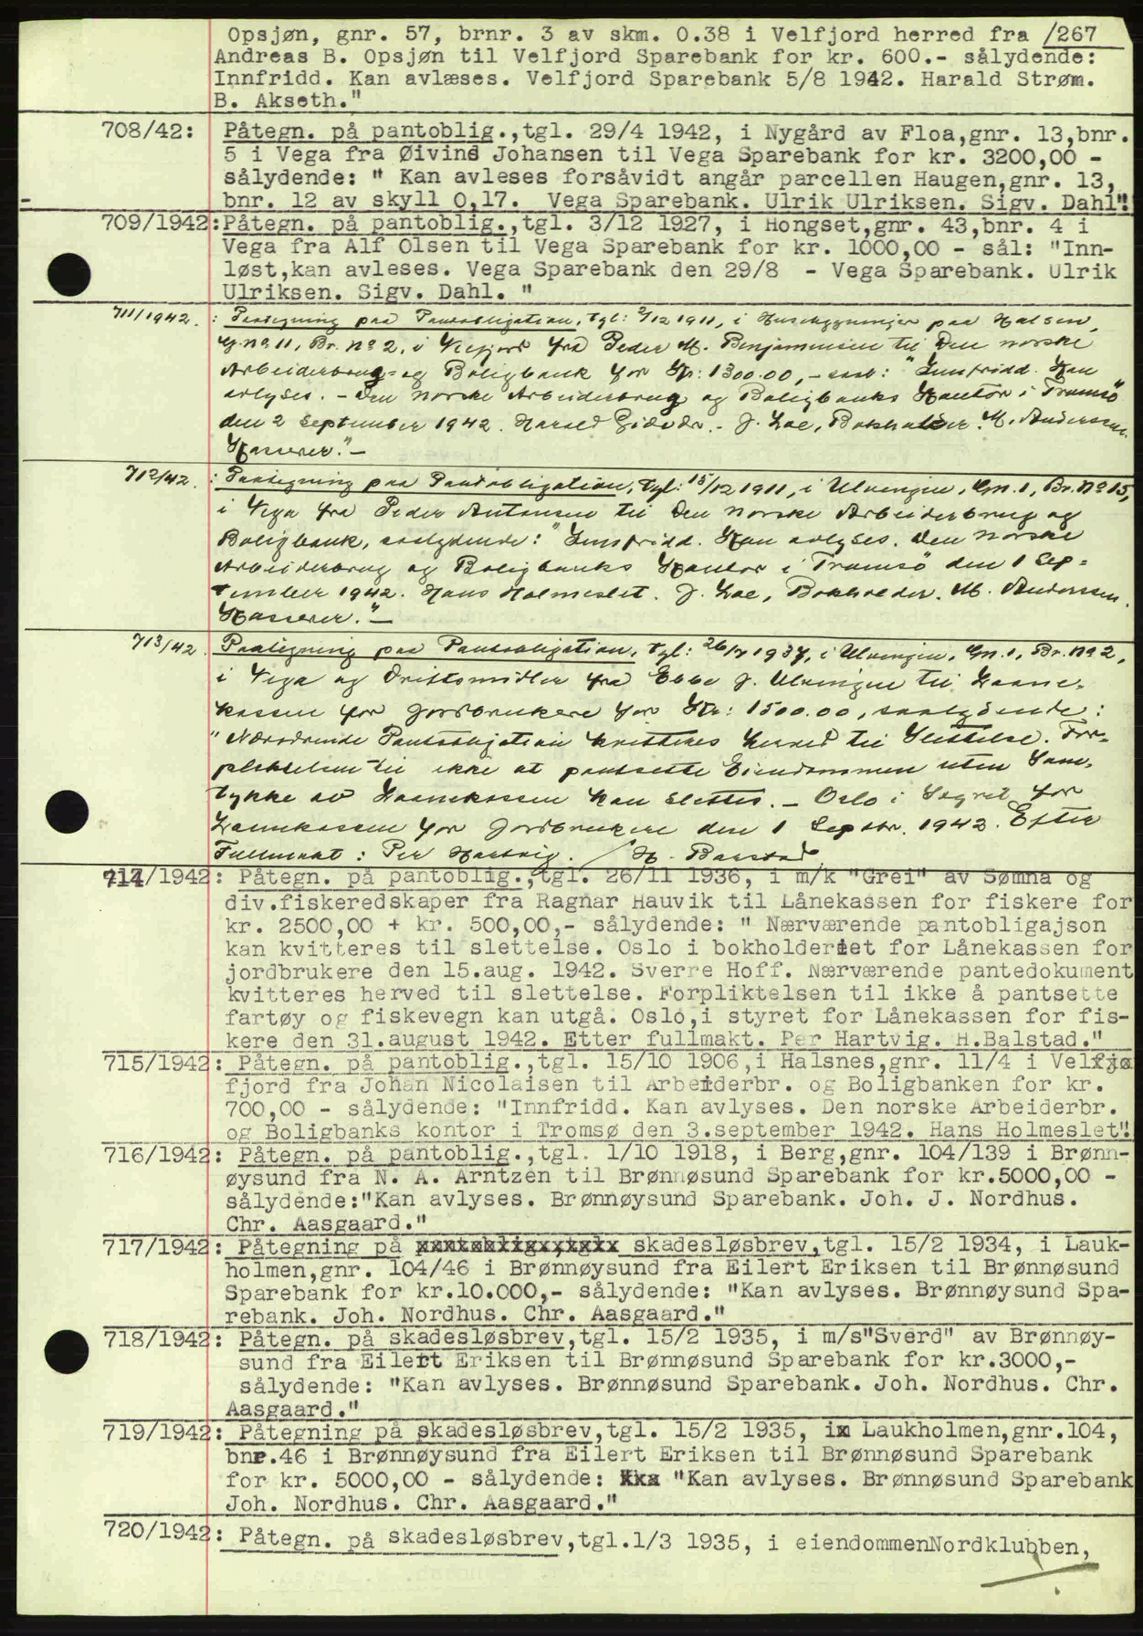 Opsjøn, gnr. 57, brnr. 3 av skm. 0.38 i Velfjord herred fra /267
Andreas B. Opsjøn til Velfjord Sparebank for kr. 600.- sålydende:
Innfridd. Kan avlæses. Velfjord Sparebank 5/8 1942. Harald Strøm.
B. Akseth."
708/42: Påtegn. på pantoblig.,tgl. 29/4 1942, i Nygård av Floa,gnr. 13,bnr.
5 i Vega fra Øivind Johansen til Vega Sparebank for kr. 3200,00 -
sålydende: " Kan avleses forsåvidt angår parcellen Haugen,gnr. 13,
bnr. 12 av skyll 0,17. Vega Sparebank. Ulrik Ulriksen. Sigv. Dahl"!
709/1942: Påtegn. på pantoblig.,tgl. 3/12 1927, i Hongset,gnr. 43,bnr. 4 i
Vega fra Alf Olsen til Vega Sparebank for kr. 1000,00 - sål: "Inn-
løst,kan avleses. Vega Sparebank den 29/8 - Vega Sparebank. Ulrik
Ulriksen. Sigv. Dahl. "
711/1942. : Paategning paa Pantobligation, tgl: 2/12 1911, i Husebygninger paa Halsen,
G. no 11, Br. No 2, i Vefjord fra Peder M. Benjaminsen til Den norske
Arbeiderbrug- og Boligbank for Kr: 1300.00, - saal: "Innfridd. Kan
avlyses. - Den norske Arbeiderbrug og Boligbanks Kontor i Tromsö
den 2 September 1942. Harald . - J. Loe, Bokholder. M. Andersen.
Kasserer." -
712/42. : Paategning paa Pantobligation, Tgl: 15/12 1911, i Ulvingen, Gn. 1, Br. No 15,
i Vega fra Peder Antonsen til Den norske Arbeiderbrug og
Boligbank, saalydende: "Innfridd. Kan avlyses. Den norske
Arbeiderbrug og Boligbanks Kontor i Tromsö den 1 Sep-
tember 1942. Hans Holmeslet. J. Loe, Bokholder. M. Andersen.
Kasserer." -
713/42 . Paategning paa Pantobligation, Tgl: 26/7 1937, i Ulvingen, Gn. 1, Br. No 2,
i Vega og Driftsmidler fra Ebbe J. Ulvingen til Laane-
kassen for Jordbrukere for Kr: 1500.00, saalydende:
"Nærværende Pantobligation kvitteres herved til Slettelse. For-
pliktelsen til ikke at pantsette Eiendommen uten Sam-
tykke av Laanekassen kan slettes. - Oslo i for
Laanekassen for Jordbrukere den 1 Septbr. 1942. Efter
Fullmakt: Per Hartvig. / H. Balstad
714/1942: Påtegn. på pantoblig.,tgl. 26/11 1936, i m/k "Grei" av Sømna og
div.fiskeredskaper fra Ragnar Hauvik til Lånekassen for fiskere for
kr. 2500,00 + kr. 500,00,- sålydende: " Nærværende pantobligajson
kan kvitteres til slettelse. Oslo i bokholderiet for Lånekassen for
jordbrukere den 15.aug. 1942. Sverre Hoff. Nærværende pantedokument
kvitteres herved til slettelse. Forpliktelsen til ikke å pantsette
fartøy og fiskevegn kan utgå. Oslo,i styret for Lånekassen for fis-
kere den 31.august 1942. Etter fullmakt. Per Hartvig. H.Balstad."
715/1942: Påtegn. på pantoblig.,tgl. 15/10 1906,i Halsnes,gnr. 11/4 i Velfjø
fjord fra Johan Nicolaisen til Arbeiderbr. og Boligbanken for kr.
700,00 - sålydende: "Innfridd. Kan avlyses. Den norske Arbeiderbr.
og Boligbanks kontor i Tromsø den 3.september 1942. Hans Holmeslet"!
716/1942: Påtegn. på pantoblig.,tgl. 1/10 1918, i Berg,gnr. 104/139 i Brønn-
øysund fra N. A. Arntzen til Brønnøsund Sparebank for kr.5000,00 -
sålydende:"Kan avlyses. Brønnøysund Sparebank. Joh. J. Nordhus.
Chr. Aasgaard."
717/1942: Påtegning på skadesløsbrev,tgl. 15/2 1934, i Lauk-
holmen,gnr. 104/46 i Brønnøysund fra Eilert Eriksen til Brønnøsund
Sparebank for kr.10.000,- sålydende: "Kan avlyses. Brønnøysund Spa-
rebank. Joh. Nordhus. Chr. Aasgaard."
718/1942: Påtegn. på skadesløsbrev,tgl. 15/2 1935, i m/s"Sverd" av Brønnøy-
sund fra Eilert Eriksen til Brønnøsund Sparebank for kr.3000,-
sålydende: "Kan avlyses. Brønnøsund Sparebank. Joh. Nordhus. Chr.
Aasgaard."
719/1942: Påtegning på skadesløsbrev,tgl. 15/2 1935, ix Laukholmen,gnr.104,
bnr.46 i Brønnøysund fra Eilert Eriksen til Brønnøsund Sparebank
for kr. 5000,00 - sålydende: "Kan avlyses. Brønnøsund Sparebank
Joh. Nordhus. Chr. Aasgaard."
720/1942: Påtegn. på skadesløsbrev,tgl.1/3 1935, i eiendommenNordklubben,